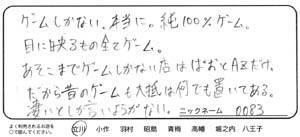 ゲームしかない、本当に。純100%ゲーム。
目に映るもの全てゲーム。
あそこまでゲームしかない店はぱおとAZだけ。
だから昔のゲームも大抵は何でも置いてある。
凄いとしか言いようがない。
ニックネーム 0083
よく利用されるお店を○で囲んでください。
立川 小作 羽村 昭島 青梅 高幡 堀之内 八王子